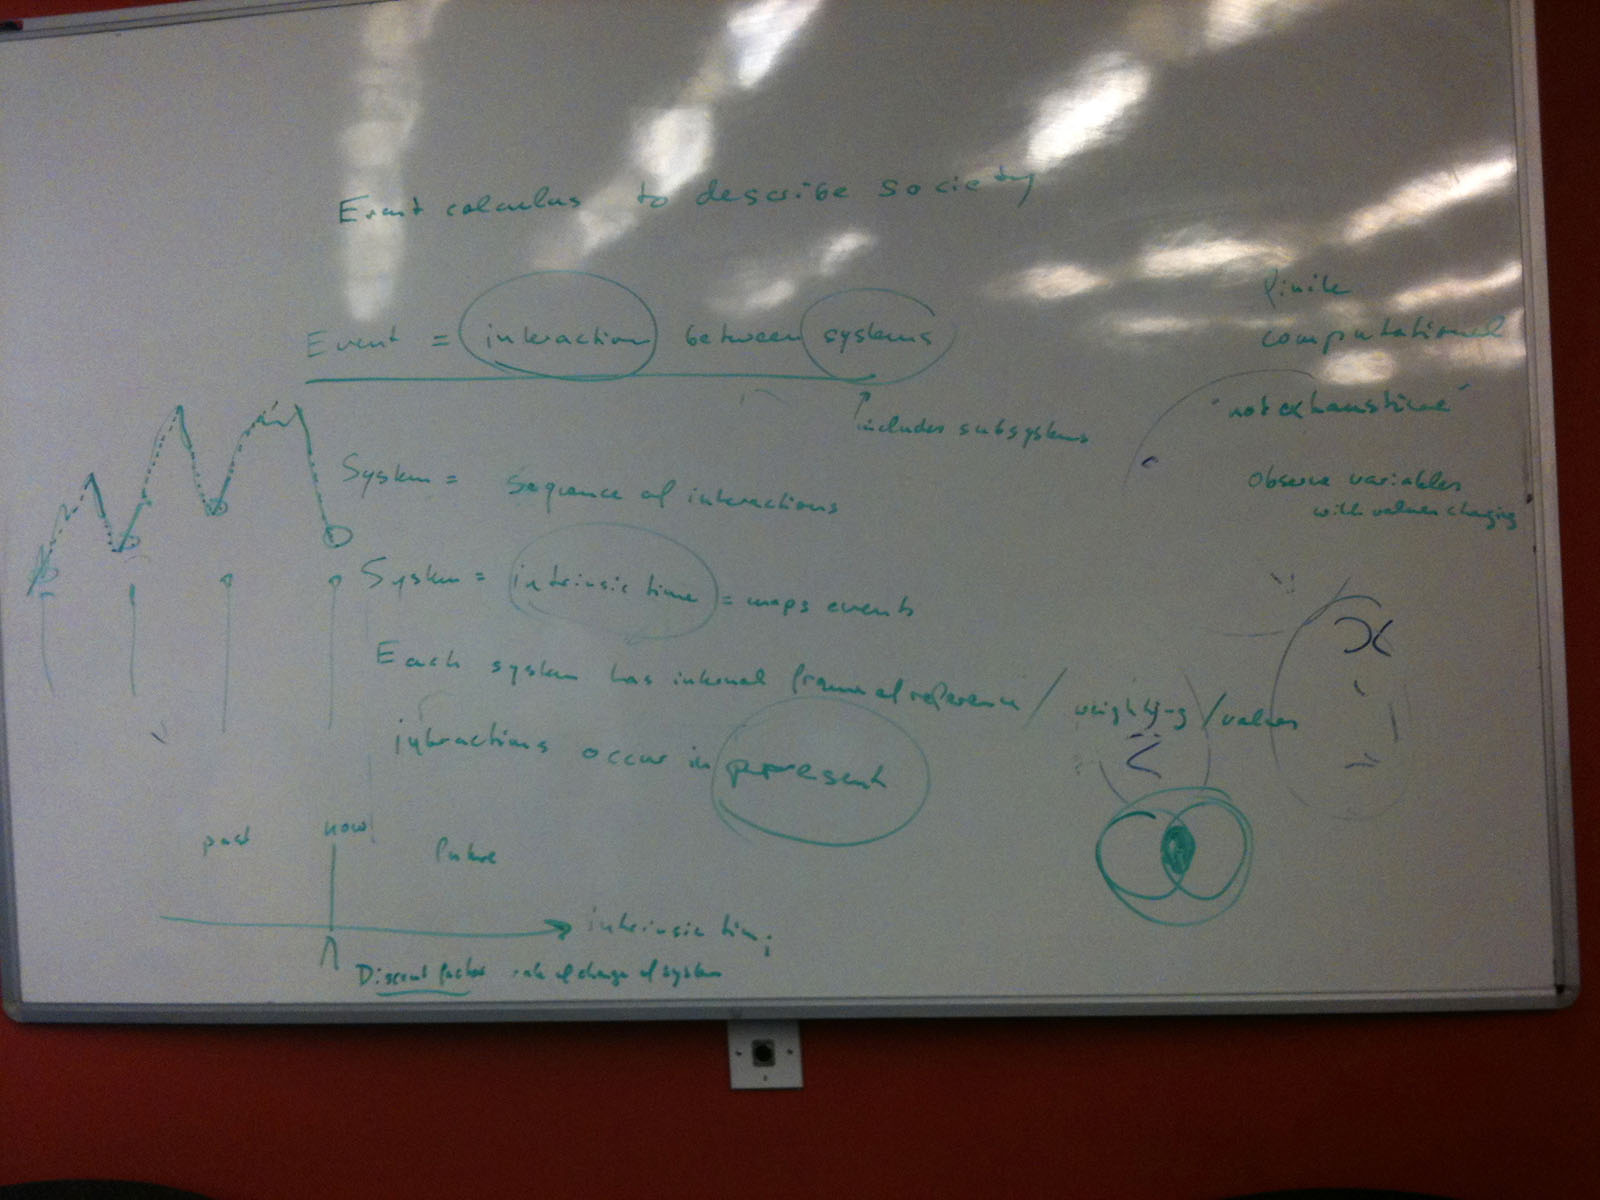 Event calculus to describe society
Event = interaction between systems
includes subsystems
finite
computational
"not exhaustive"
Observe variables
with values changing
System = Sequence of interactions
System = intrinsic time = maps events
Each system has internal frame of reference / weighting / values
interactions occur in present
past now future
intrinsic time
Discount factor rate of change of system